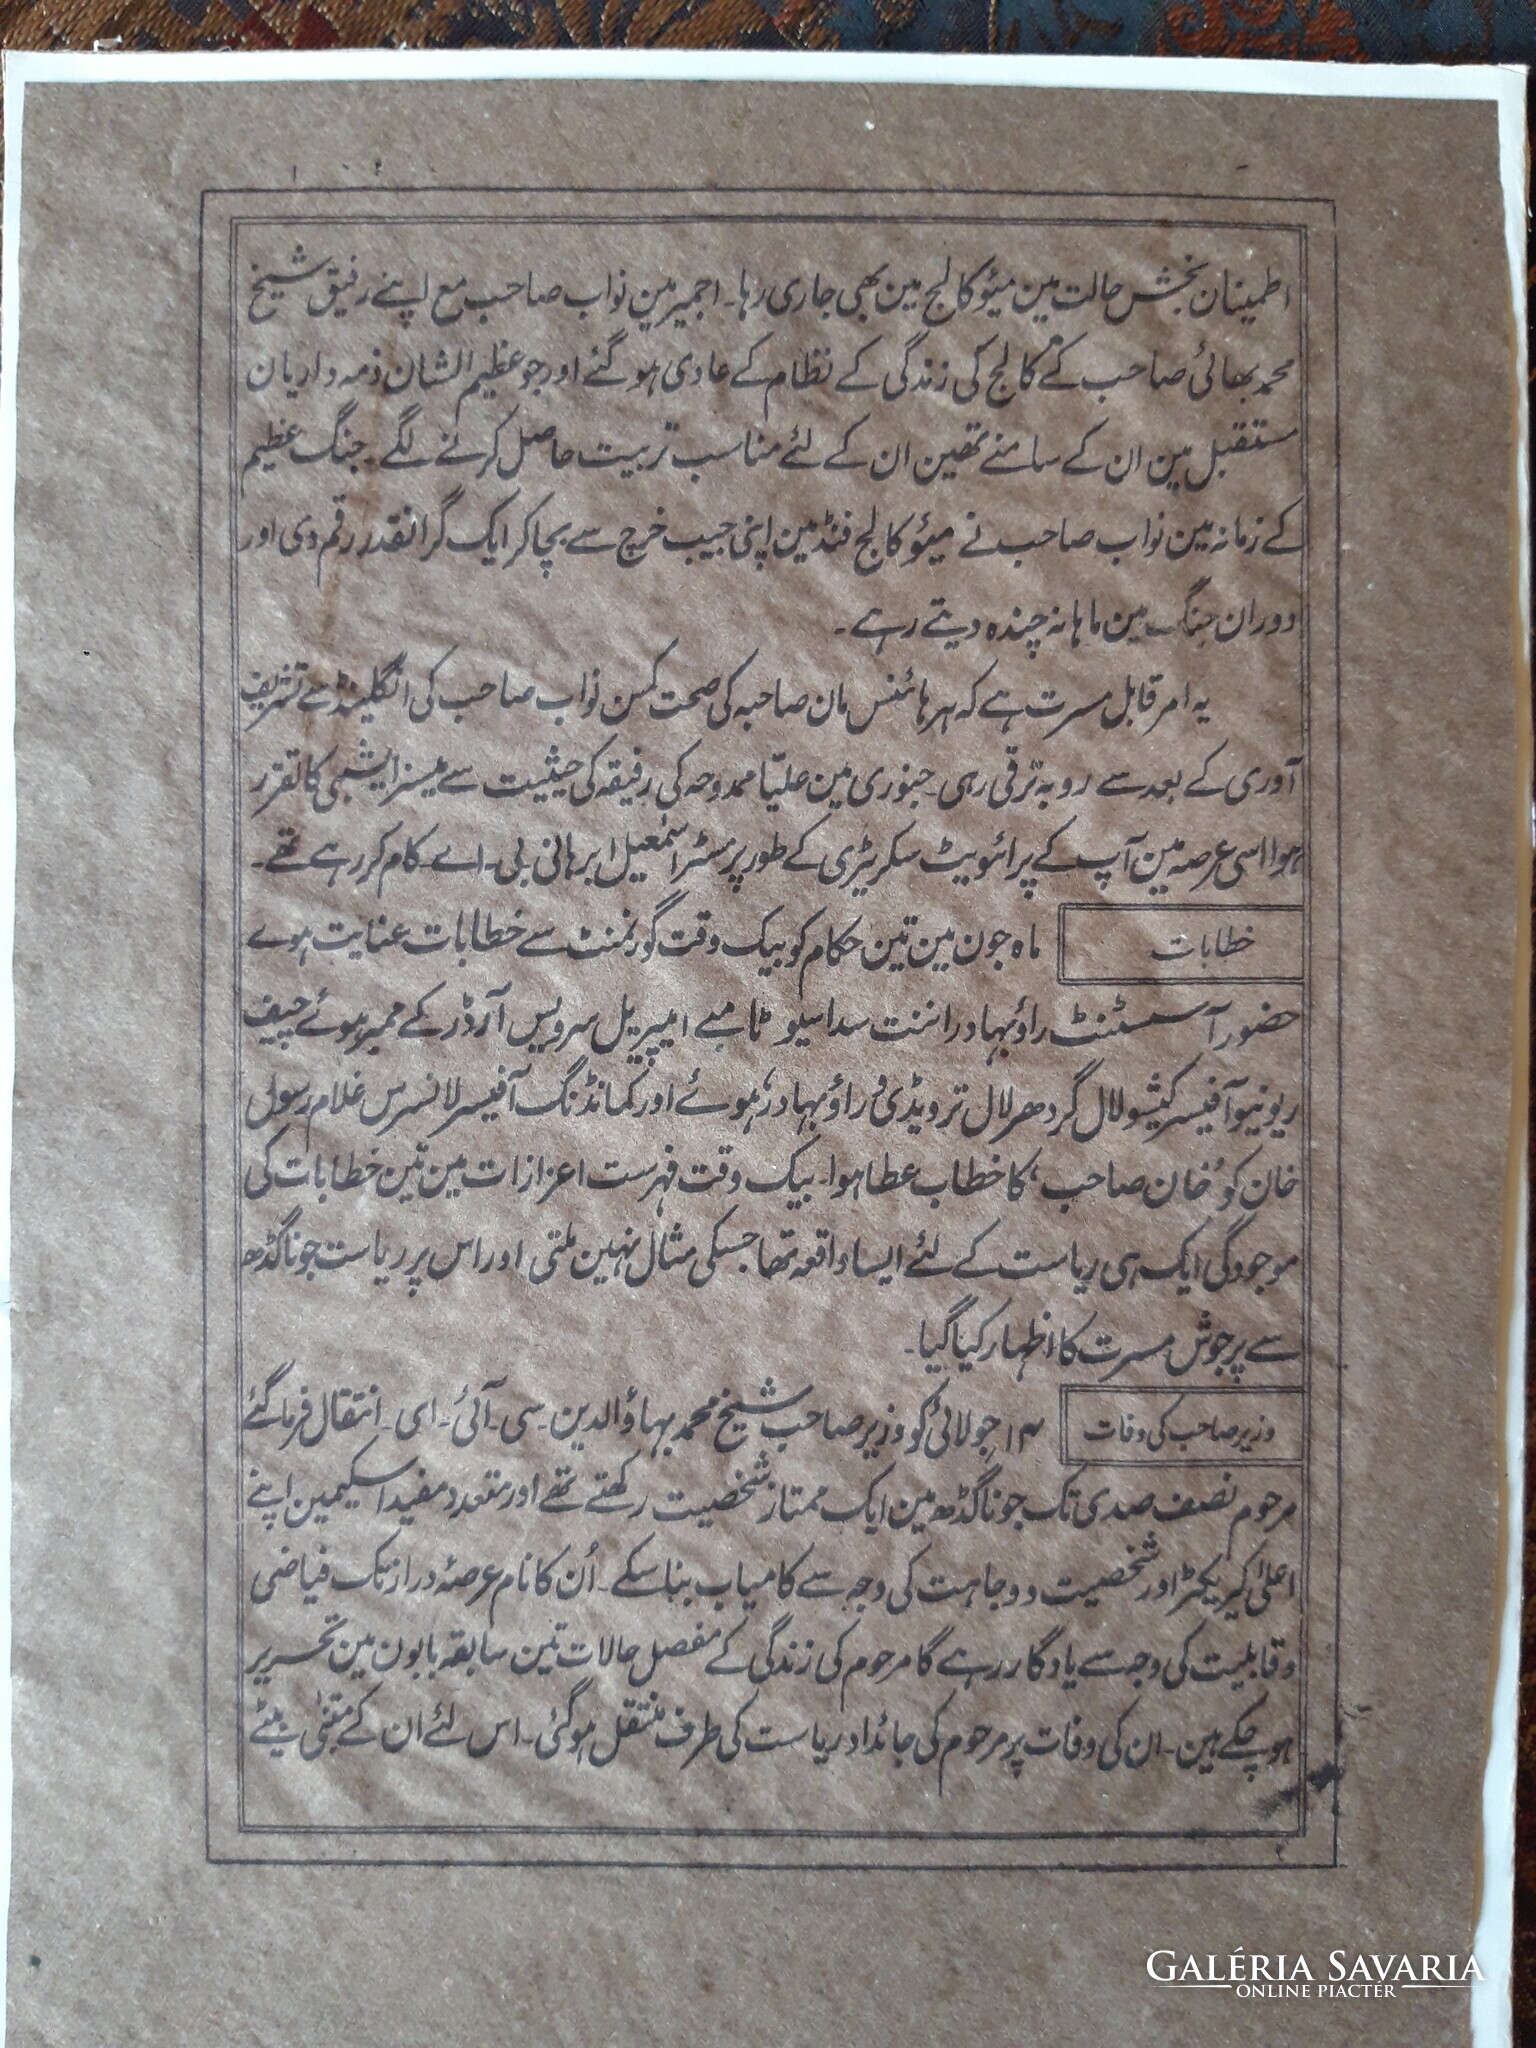 اطمینان بخش حالت مین میئو کالج مین بھی جاری رہا۔ اجمیر مین نواب صاحب مع اپنے رفیق شیخ
محمد بھائی صاحب کے کالج کی زندگی کے نظام کے عادی ہو گئے اور جو عظیم الشان ذمہ داریان
مستقبل مین ان کے سامنے تھین ان کے لئے مناسب تربیت حاصل کرنے لگے۔ جنگ عظیم
کے زمانہ مین نواب صاحب نے میئو کالج فنڈ مین اپنی جیب خرچ سے بچا کر ایک گرانقدر رقم دی اور
دوران جنگ مین ماہانہ چندہ دیتے رہے۔
یہ امر قابل مسرت ہے کہ ہر ہائنس مان صاحبہ کی صحت کمسن نواب صاحب کی انگلینڈ سے تشریف
آوری کے بعد سے رو بہ ترقی رہی۔ جنوری مین علیّا ممدوحہ کی رفیقہ کی حیثیت سے مسز ایشبی کا تقرر
ہوا اسی عرصہ مین آپ کے پرائویٹ سکریٹری کے طور پر مسٹر اسمٰعیل ابرہانی بی۔ اے۔ کام کر رہے تھے۔
خطابات
ماہ جون مین تین حکام کو بیک وقت گورنمنٹ سے خطابات عنایت ہوے
حضور آسسٹنٹ راؤ بہادر اننت سداسیو ٹامبے امپیریل سرویس آرڈر کے ممبر ہوئے چیف
ریونیو آفیسر کیشو لال گردھر لال ترویڈی ’راؤ بہادر‘ ہوئے اور کمانڈنگ آفیسر لانسرس غلام رسول
خان کو ’خان صاحب‘ کا خطاب عطا ہوا۔ بیک وقت فہرست اعزازات مین تین خطابات کی
موجودگی ایک ہی ریاست کے لئے ایسا واقعہ تھا جسکی مثال نہین ملتی اور اس پر ریاست جوناگڈھ
سے پر جوش مسرت کا اظہار کیا گیا۔
وزیر صاحب کی وفات
۱۳ جولائی کو وزیر صاحب شیخ محمد بہاؤالدین۔ سی۔ آئی۔ ای۔ انتقال فرما گئے
مرحوم نصف صدی تک جوناگڈھ مین ایک ممتاز شخصیت رکھتے تھے اور متعدد مفید اسکیمین اپنے
اعلیٰ کیریکٹر اور شخصیت و وجاہت کی وجہ سے کامیاب بنا سکے۔ اُن کا نام عرصۂ دراز تک فیاضی
و قابلیت کی وجہ سے یادگار رہے گا مرحوم کی زندگی کے مفصل حالات تین سابقہ بابون مین تحریر
ہو چکے ہین۔ ان کی وفات پر مرحوم کی جائداد ریاست کی طرف منتقل ہو گئی۔ اس لئے ان کے متبنٰی بیٹے
GALÉRIA SAVARIA
ONLINE PIACTÉR